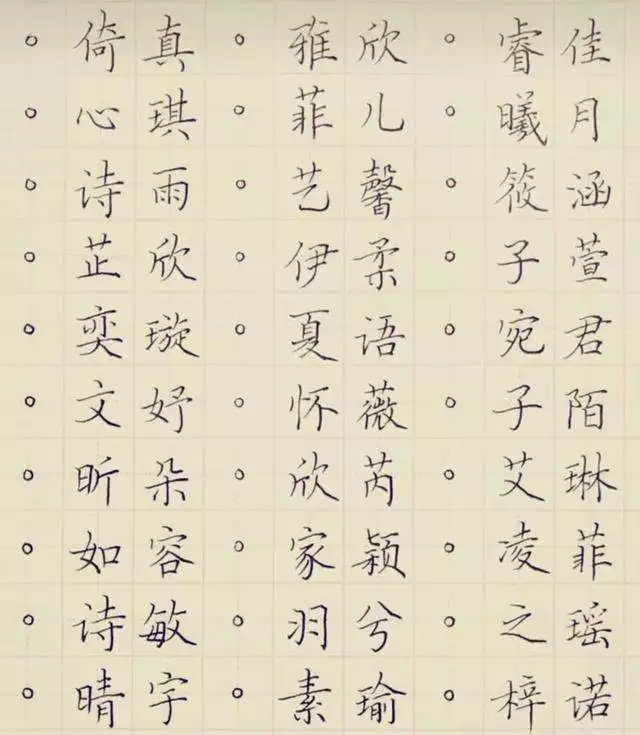 。倚真 。雅欣 。睿佳
。心琪 。菲儿 。曦月
。诗雨 。艺馨 。筱涵
。芷欣 。伊柔 。子萱
。奕璇 。夏语 。宛君
。文妤 。怀薇 。子陌
。昕朵 。欣芮 。艾琳
。如容 。家颖 。凌菲
。诗敏 。羽兮 。之瑶
。晴宇 。素瑜 。梓诺